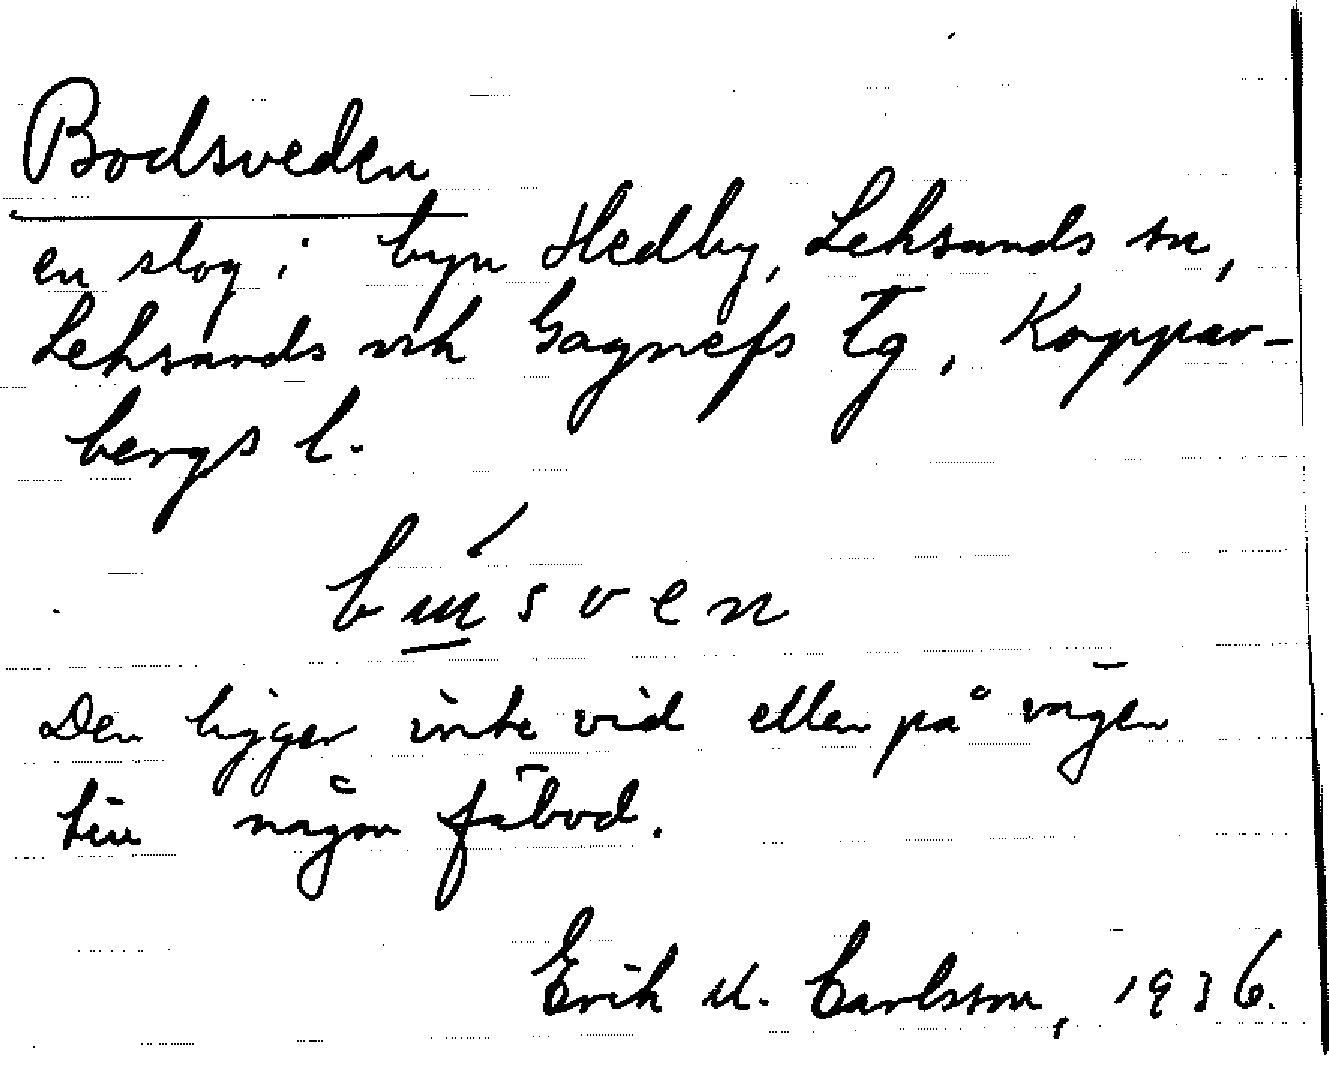 Bodsveden
en slog i byn Hedby, Leksands sn,
Leksands och Gagnefs tg, Koppar-
bergs l.
b u s v e n
Den ligger inte vid eller på vägen
till någon fäbod.
Erik M. Carlsson, 1936.